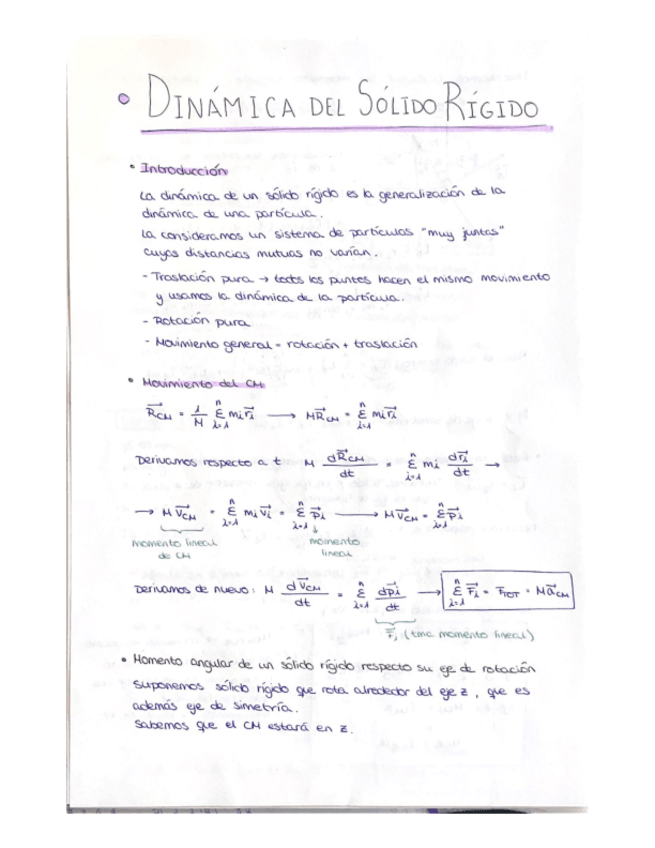 • DINÁMICA DEL SÓLIDO RÍGIDO
• Introducción
La dinámica de un sólido rígido es la generalización de la
dinámica de una partícula.
La consideramos un sistema de partículas "muy juntas"
cuyas distancias mutuas no varían.
- Traslación pura → todos los puntos hacen el mismo movimiento
y usamos la dinámica de la partícula.
- Rotación pura
- Movimiento general = rotación + traslación
• Movimiento del CM
R⃗_CM = 1/M Σ_{i=1}^{n} m_i r⃗_i → M R⃗_CM = Σ_{i=1}^{n} m_i r⃗_i
Derivamos respecto a t M dR⃗_CM/dt = Σ_{i=1}^{n} m_i dr⃗_i/dt →
→ M v⃗_CM = Σ_{i=1}^{n} m_i v⃗_i = Σ_{i=1}^{n} p⃗_i → M v⃗_CM = Σ_{i=1}^{n} p⃗_i
momento lineal de CM
momento lineal
Derivamos de nuevo: M dv⃗_CM/dt = Σ_{i=1}^{n} dp⃗_i/dt → Σ_{i=1}^{n} F⃗_i = F⃗_TOT = M a⃗_CM
F⃗_i (tma momento lineal)
• Momento angular de un sólido rígido respecto su eje de rotación
Suponemos sólido rígido que rota alrededor del eje z, que es
además eje de simetría.
Sabemos que el CM estará en z.